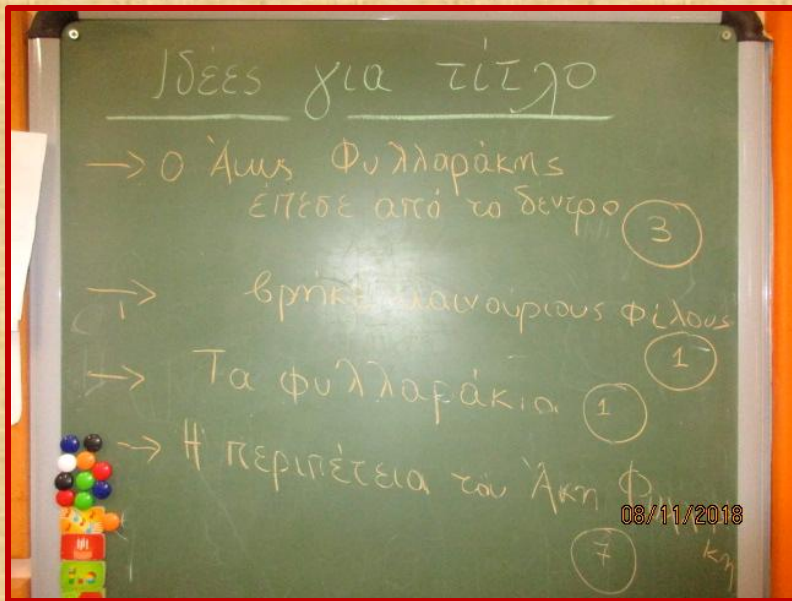 Ιδέες για τίτλο
→ Ο Άκης Φυλλαράκης
έπεσε από το δεντρο
3
→ βρήκε καινούριους φίλους
1
→ Τα φυλλαράκια 1
→ Η περιπέτεια του Άκη
κη
7
08/11/2018